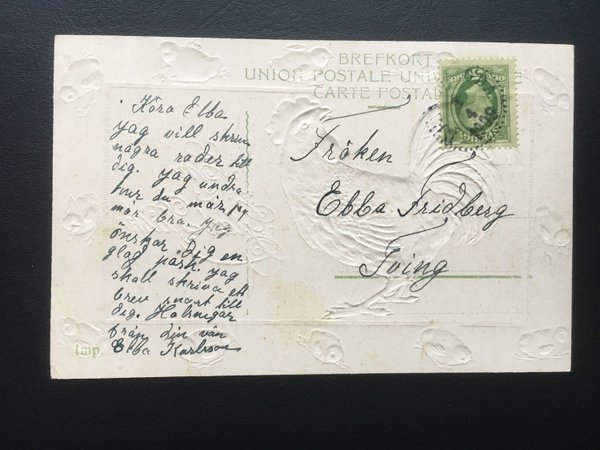 BREFKORT
UNION POSTALE UNIVERSELLE
CARTE POSTALE
Kära Ebba
Jag vill skriva
några rader till
dig. Jag undra
hur du mår, jag
mår bra. Jag
önskar Dig en
glad påsk. Jag
skall skriva ett
brev snart till
dig. Hälsningar
från Din vän
Ebba Karlsson
Fröken
Ebba Fridberg
Tving
Imp.